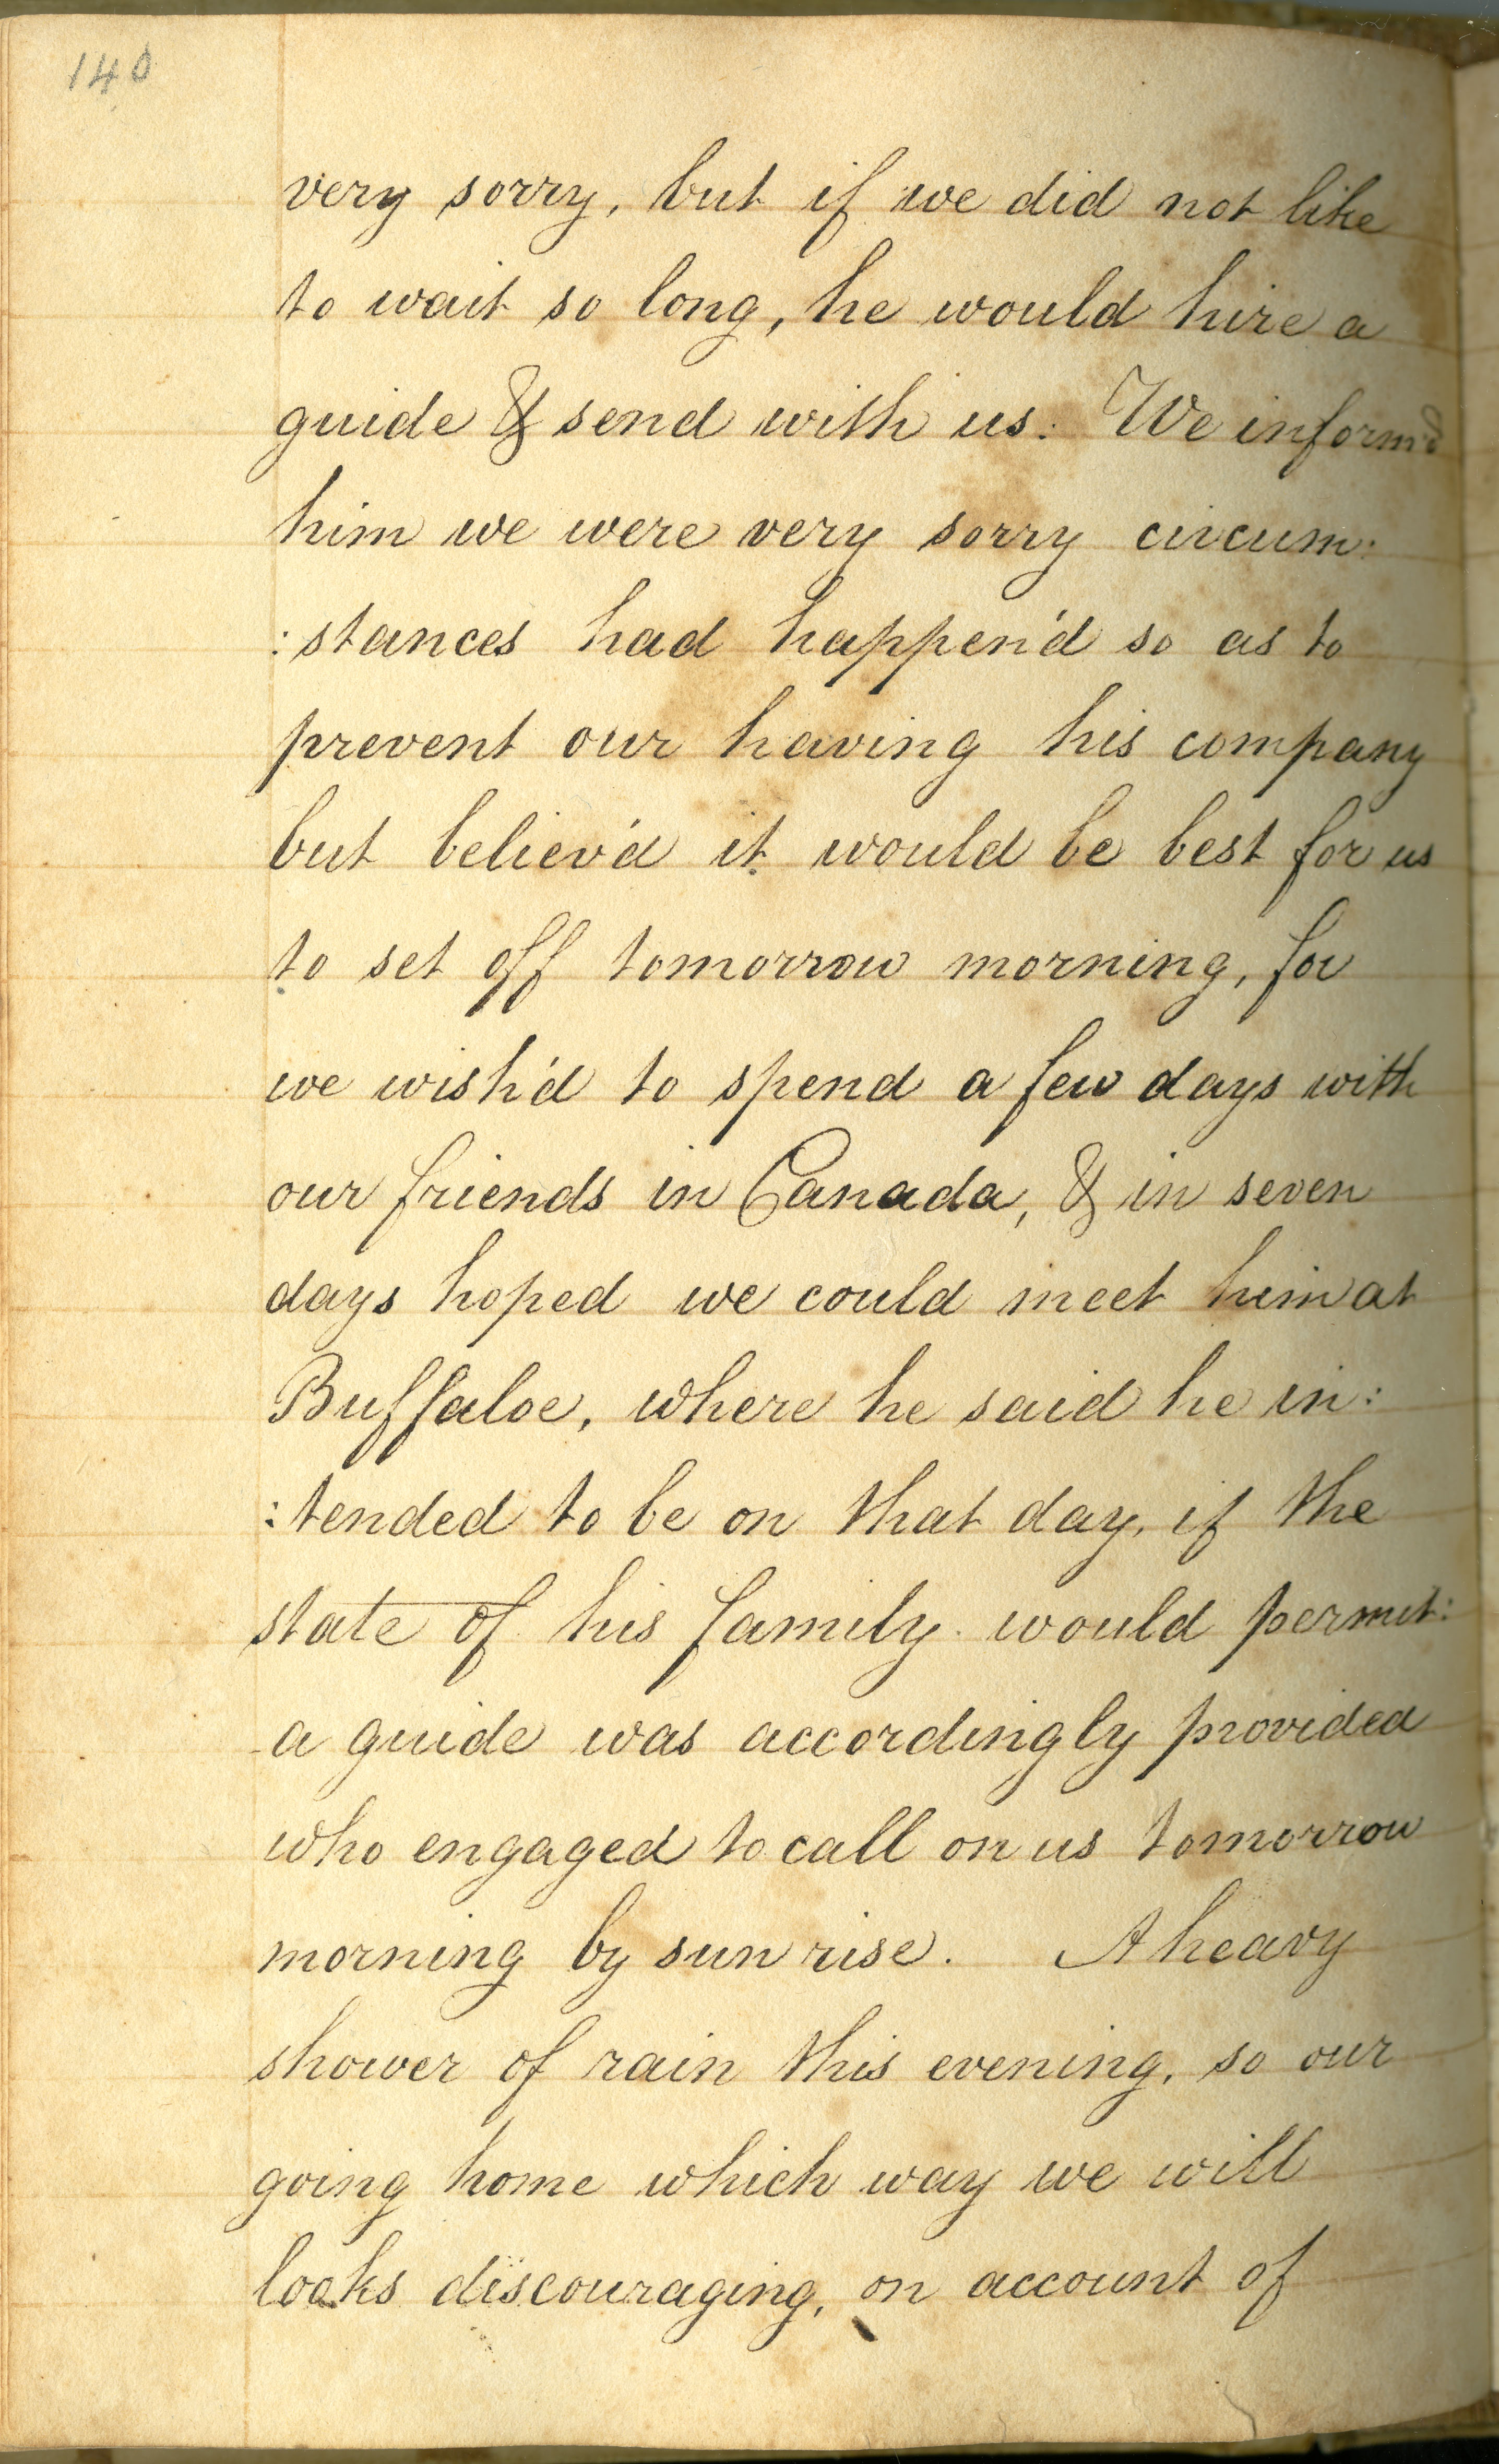 140
very sorry, but if we did not like
to wait so long, he would hire a
guide & send with us. We inform'd
him we were very sorry circum:
:stances had happen'd so as to
prevent our having his company
but believ'd it would be best for us
to set off tomorrow morning, for
we wish'd to spend a few days with
our friends in Canada, & in seven
days hoped we could meet him at
Buffaloe, where he said he in:
:tended to be on that day, if the
state of his family would permit:
a guide was accordingly provided
who engaged to call on us tomorrow
morning by sun rise. A heavy
shower of rain this evening, so our
going home which way we will
looks discouraging, on account of